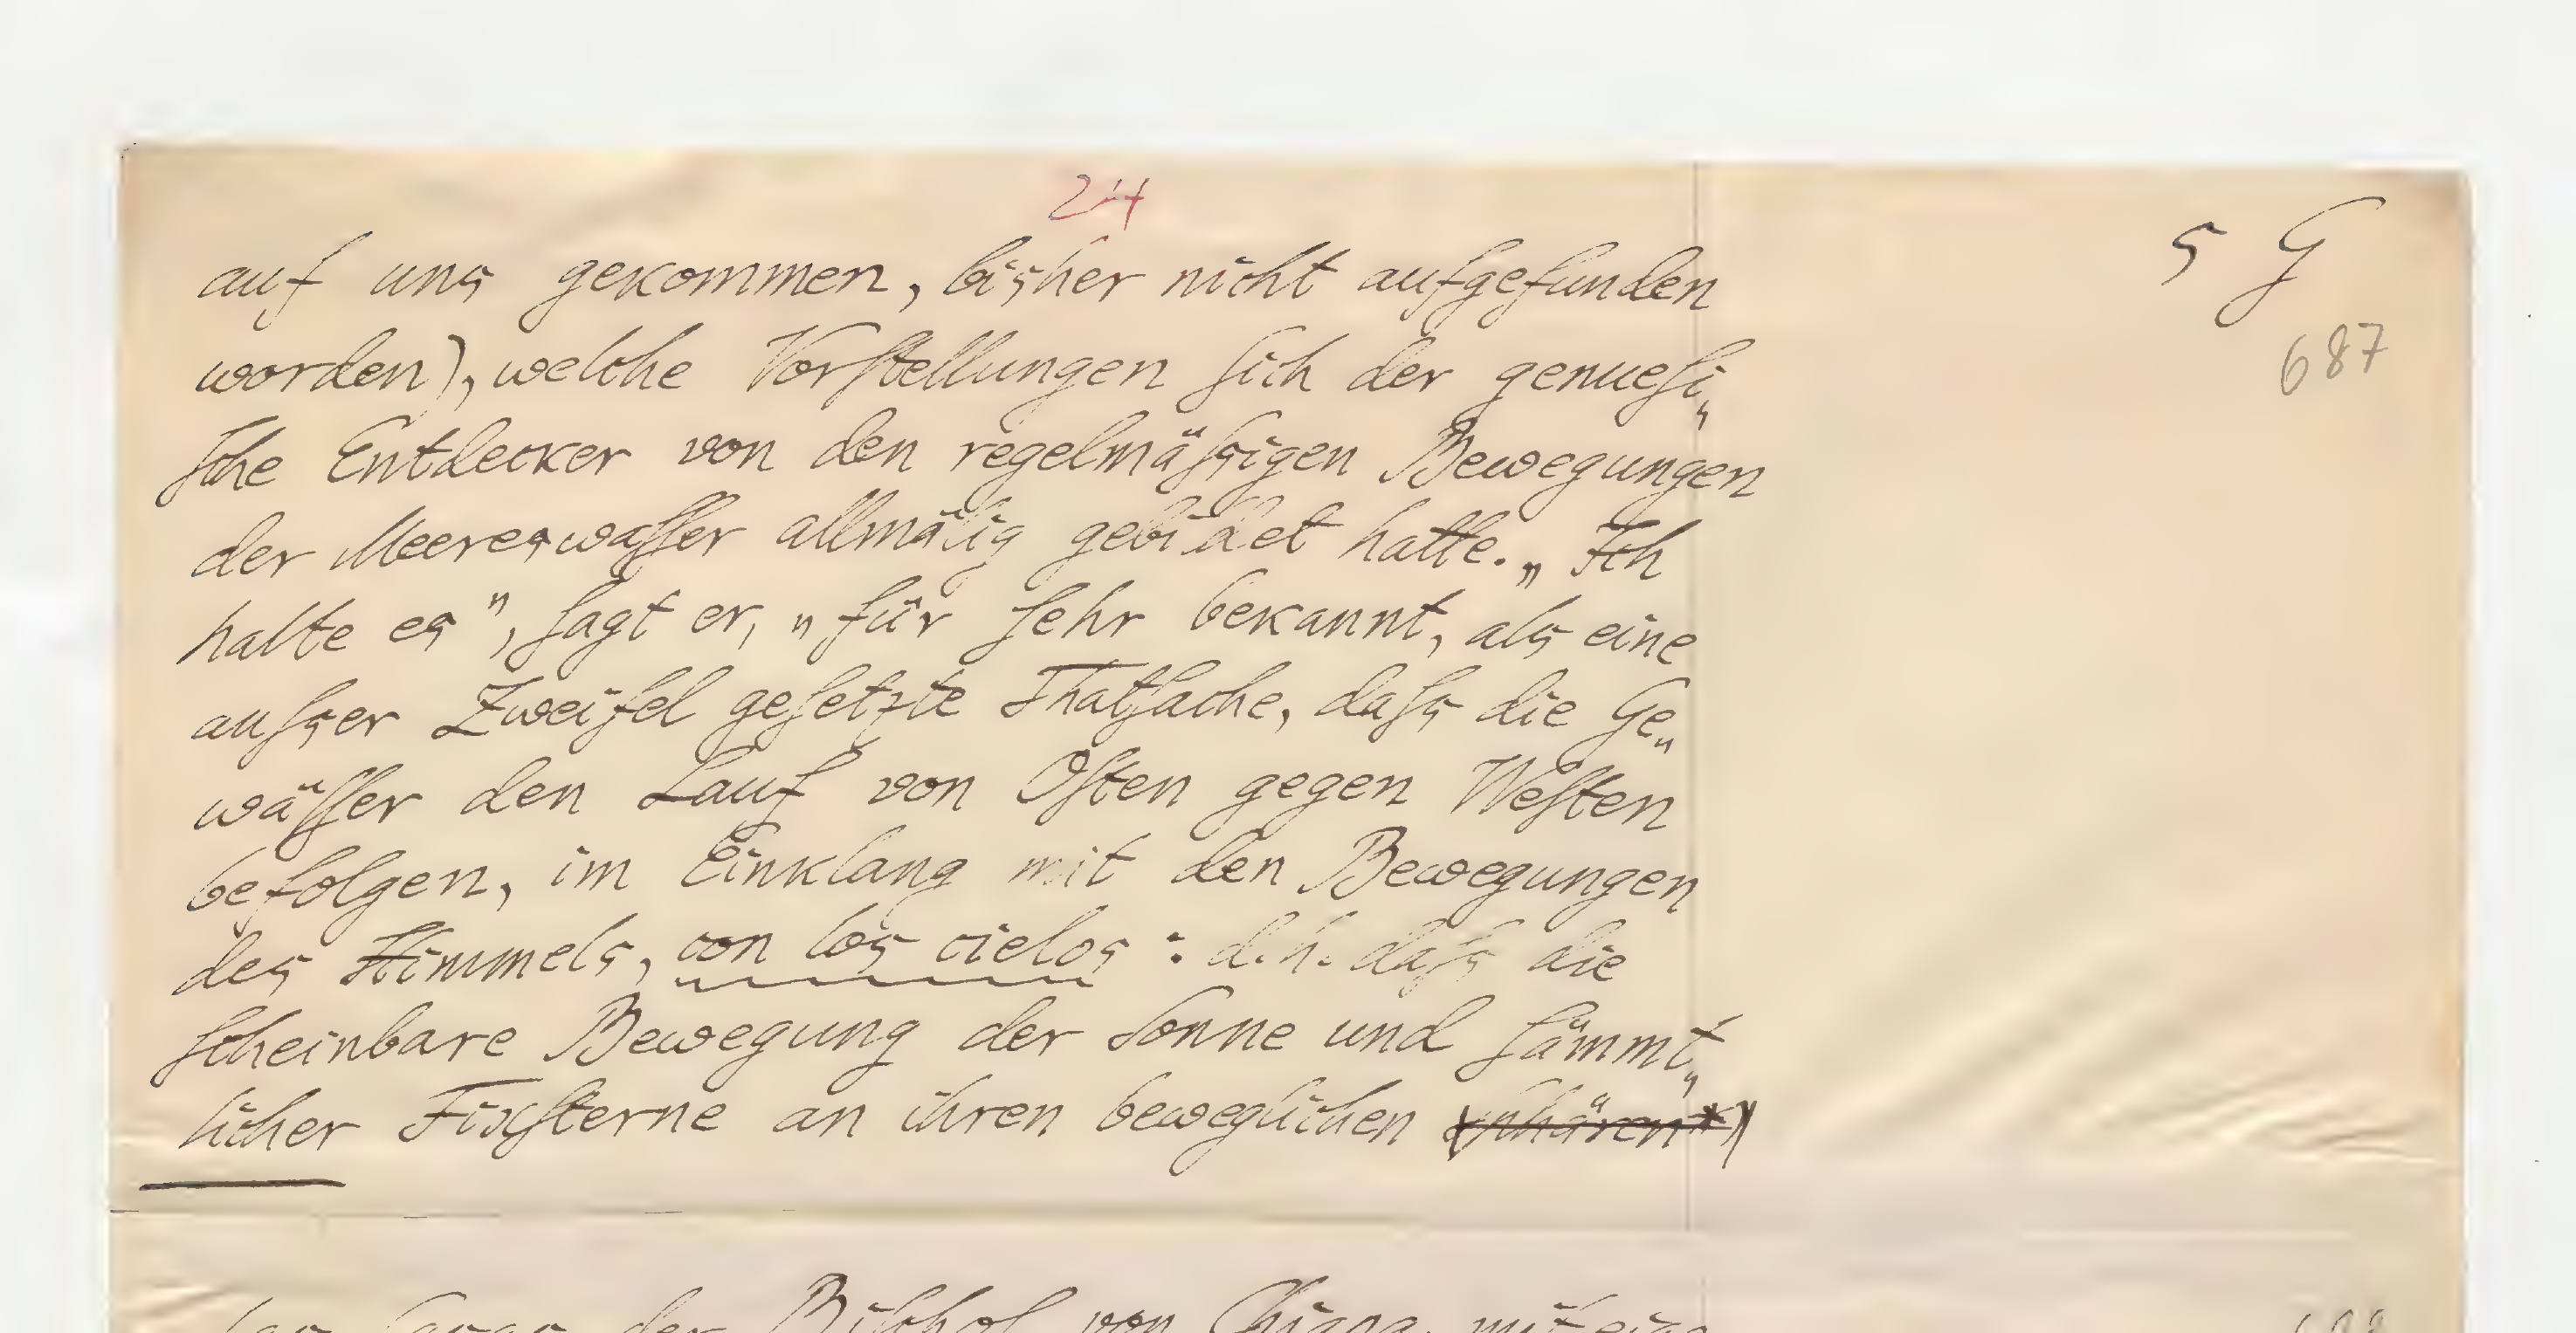 24
5 G
687
auf uns gekommen, bisher nicht aufgefunden
worden), welche Vorstellungen sich der genuesi„
sche Entdecker von den regelmässigen Bewegungen
der Meereswasser allmälig gebildet hatte. „Ich
halte es", sagt er, „für sehr bekannt, als eine
ausser Zweifel gesetzte Thatsache, dass die Ge„
wässer den Lauf von Osten gegen Westen
befolgen, im Einklang mit den Bewegungen
des Himmels, con los cielos: d.h. dass die
scheinbare Bewegung der Sonne und sämmt„
licher Fixsterne an ihren beweglichen Sphären*)
der Bischof von Chiapa, mit